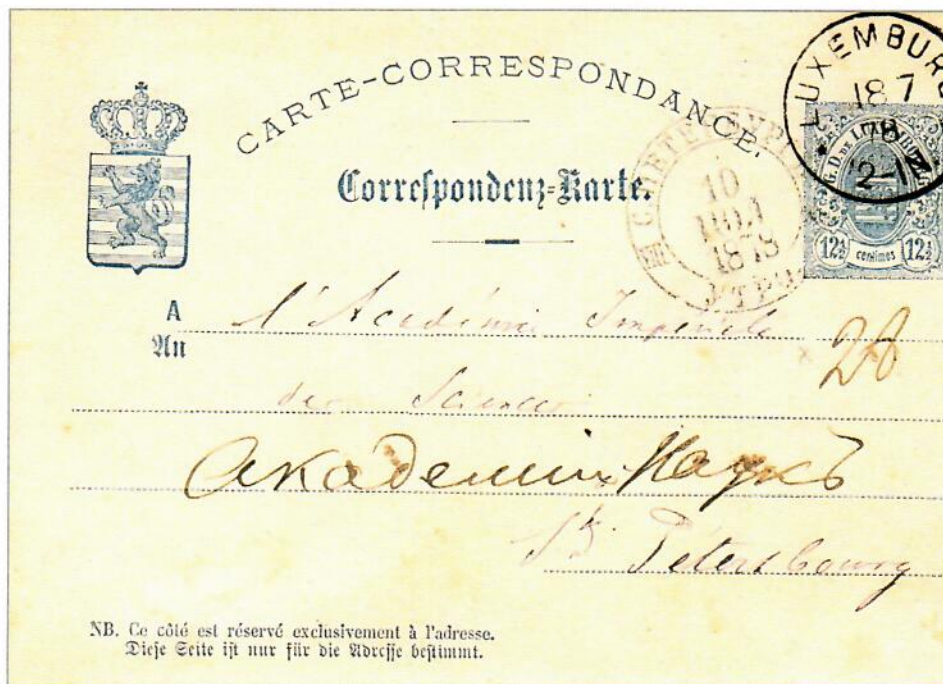 CARTE-CORRESPONDANCE.
Correspondenz-Karte.
LUXEMBURG
18 7
78
12-1
10
1878
G.D. DE LUXEMBOURG
12½ centimes 12½
A
An
l'Académie Impériale
des Sciences
Академии Наукъ
St Petersbourg
NB. Ce côté est réservé exclusivement à l'adresse.
Diese Seite ist nur für die Adresse bestimmt.